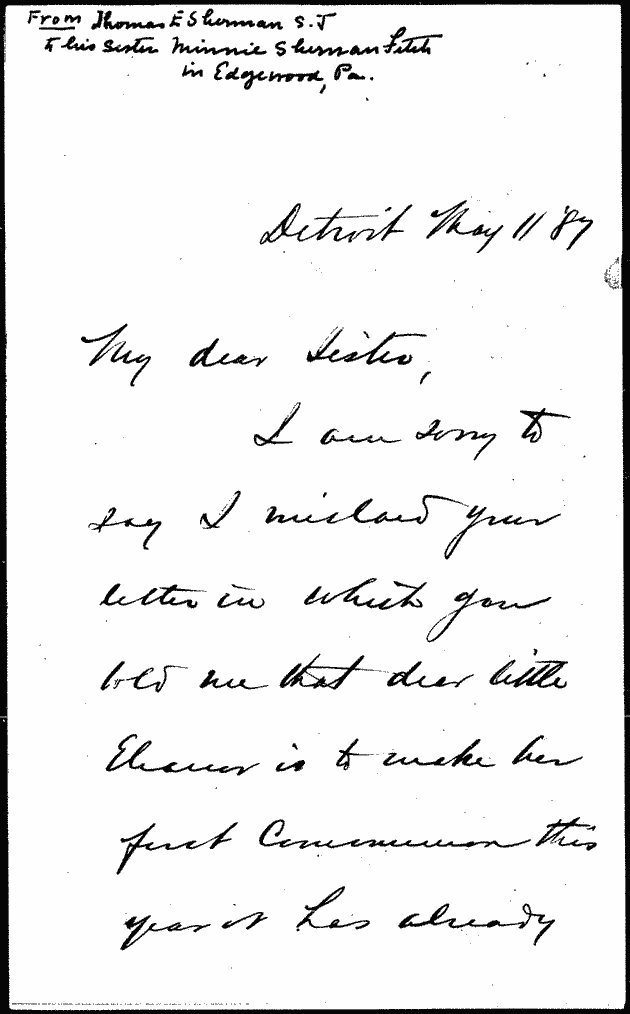 From Thomas E Sherman S.J
to his sister Minnie Sherman Fitch
in Edgewood, Pa.
Detroit May 11 '87
My dear Sister,
I am sorry to
say I mislaid your
letter in which you
told me that dear little
Eleanor is to make her
first Communion this
year or has already